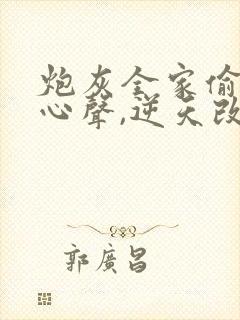 炮灰全家偷
心聲,逆天改
郭廣昌